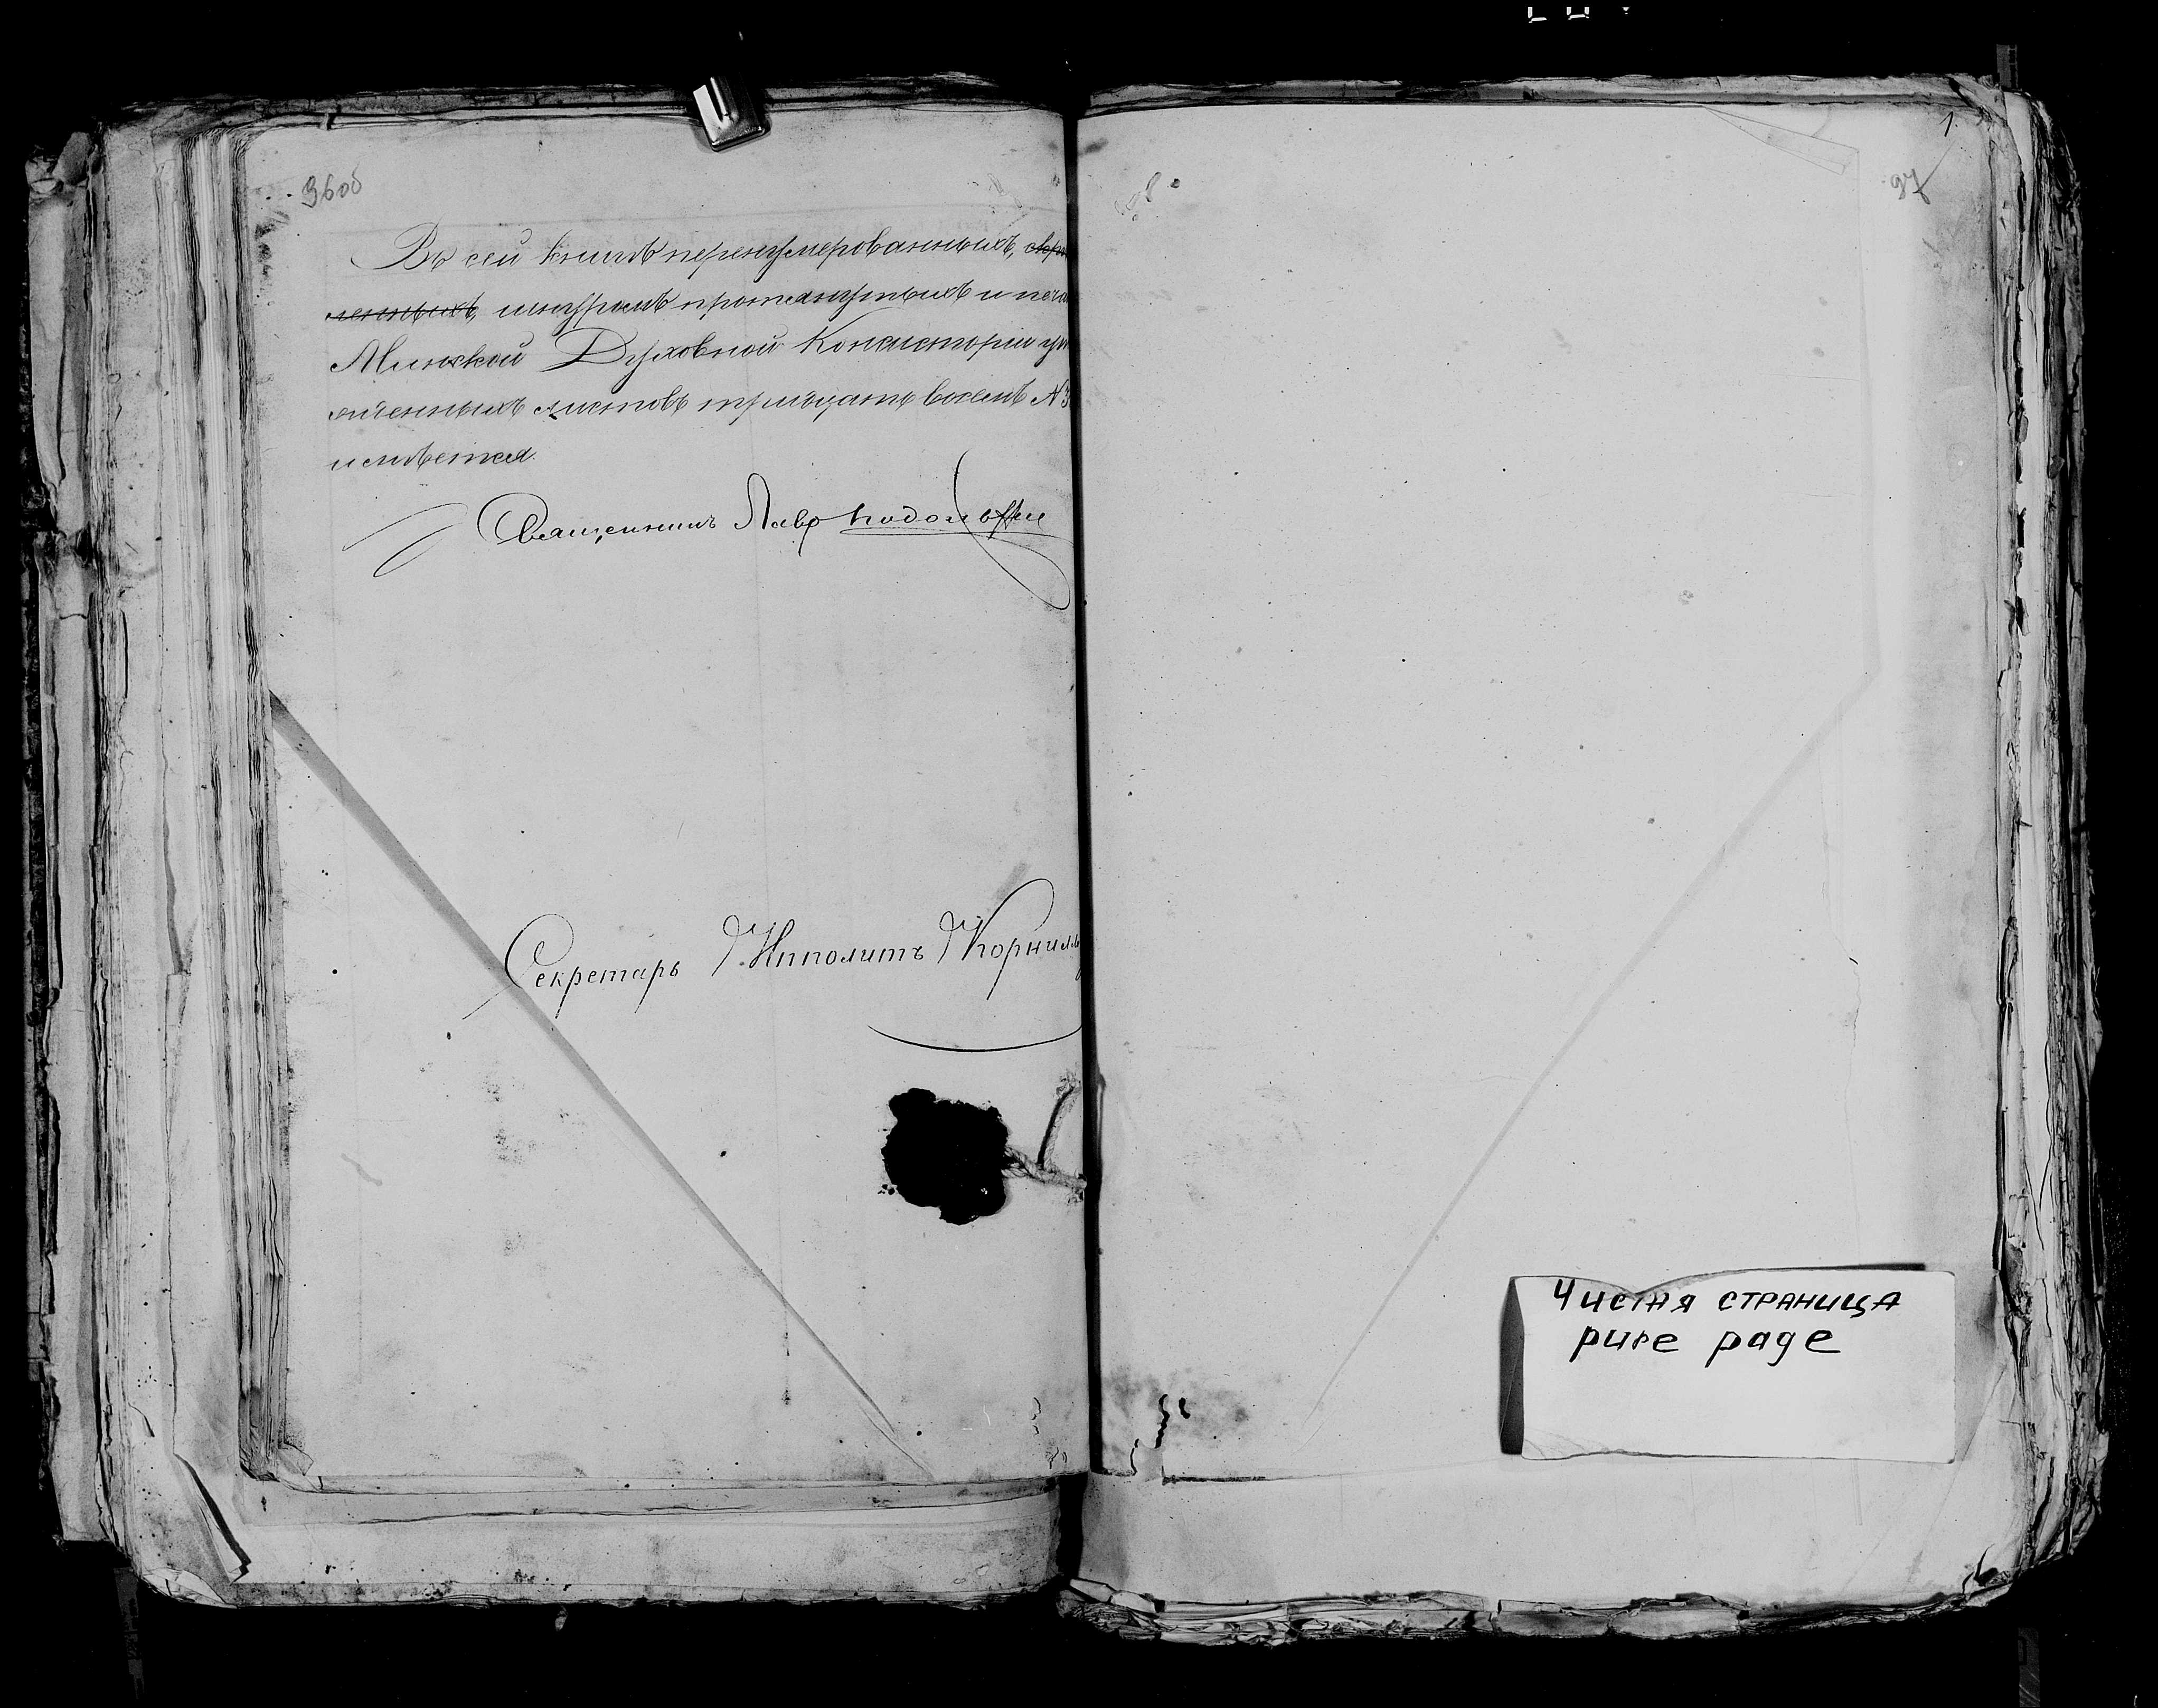 96об
Въ сей книгѣ перенумерованныхъ, скрѣп
ленныхъ, шнуромъ протянутыхъ и печа
Минской Духовной Консисторіи ут
жденныхъ листовъ тридцать восемь №3
имѣется.
Священникъ Лавр
Секретарь Ипполитъ Корнил
1.
97
Чистая страница
pure page